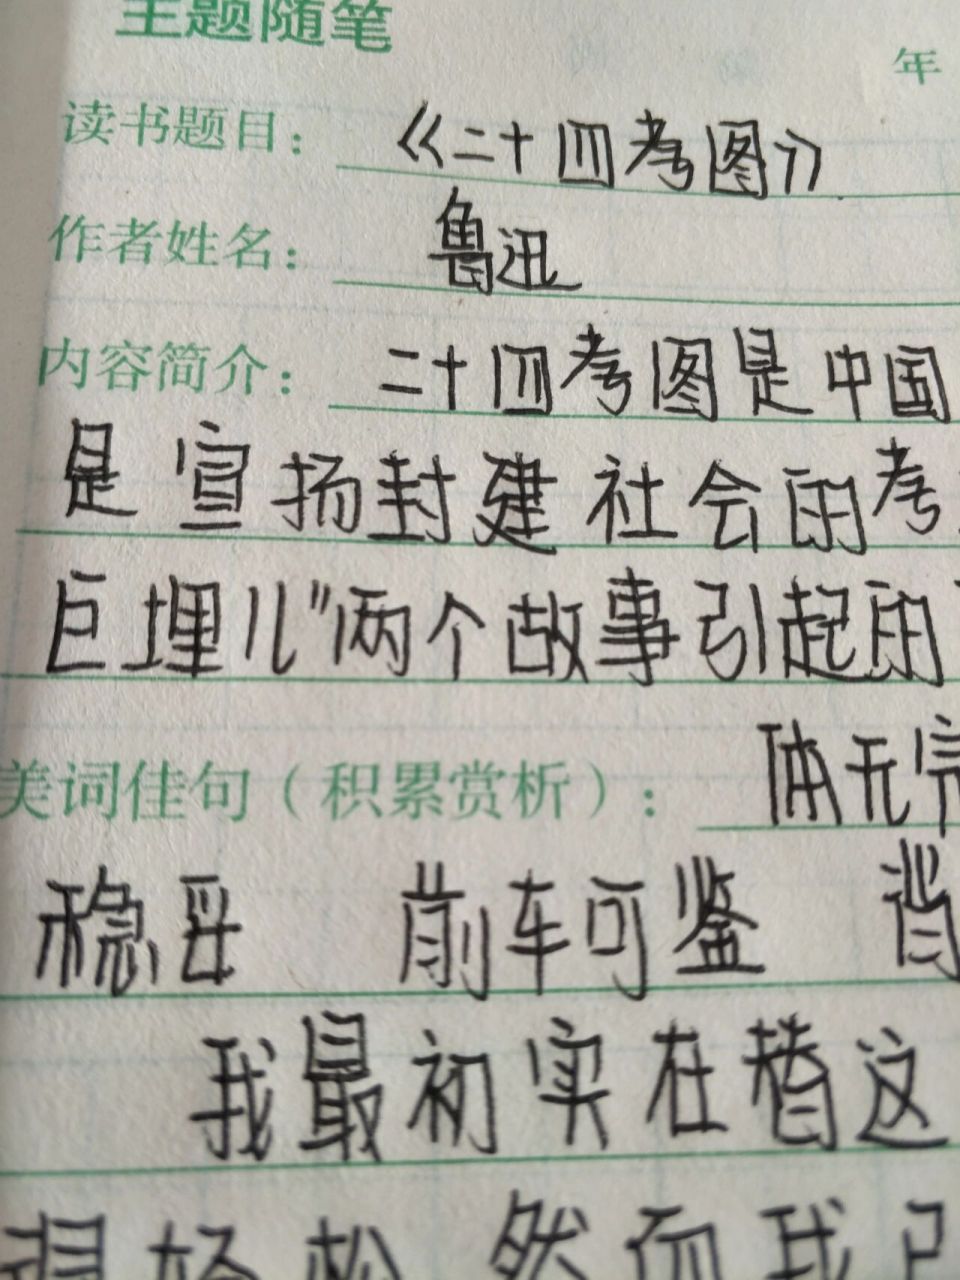 主题随笔
年
读书题目： 《二十四考图》
作者姓名： 鲁迅
内容简介： 二十四考图是中国
是宣扬封建社会的考
巨埋儿”两个故事引起的
美词佳句（积累赏析）： 体无完
稳妥 前车可鉴
我最初实在替这
很轻松 然而我已